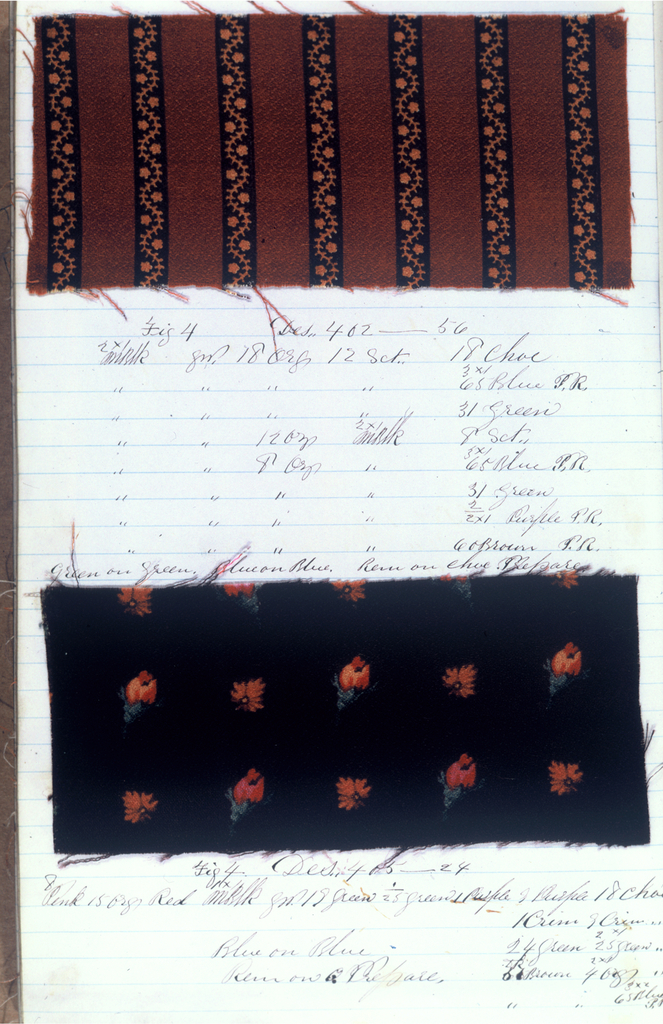 Fig 4 Des. 402 — 56
2x1 Blk gr. 18 Org 12 Sct. 18 Choc
" " " " 3x1 65 Blue P.R.
" " " " 31 Green
" " 12 Org 2x1 Blk 8 Sct.
" " 8 Org " 3x1 65 Blue P.R.
" " " " 31 Green
" " " " 2x1 Purple P.R.
" " " " 60 Brown P.R.
Green on Green. Blue on Blue. Rem on Choc Prepare
Fig 4. Des. 405 — 24
8 Pink 15 Org Red Blk gr. 19 Green 25 green 1 Purple 8 Purple 18 Choc
1 Crim 8 Crim "
Blue on Blue 24 Green 25 green "
Rem on Prepare. Brown 4 Org "
" " 65 Blue P.R.